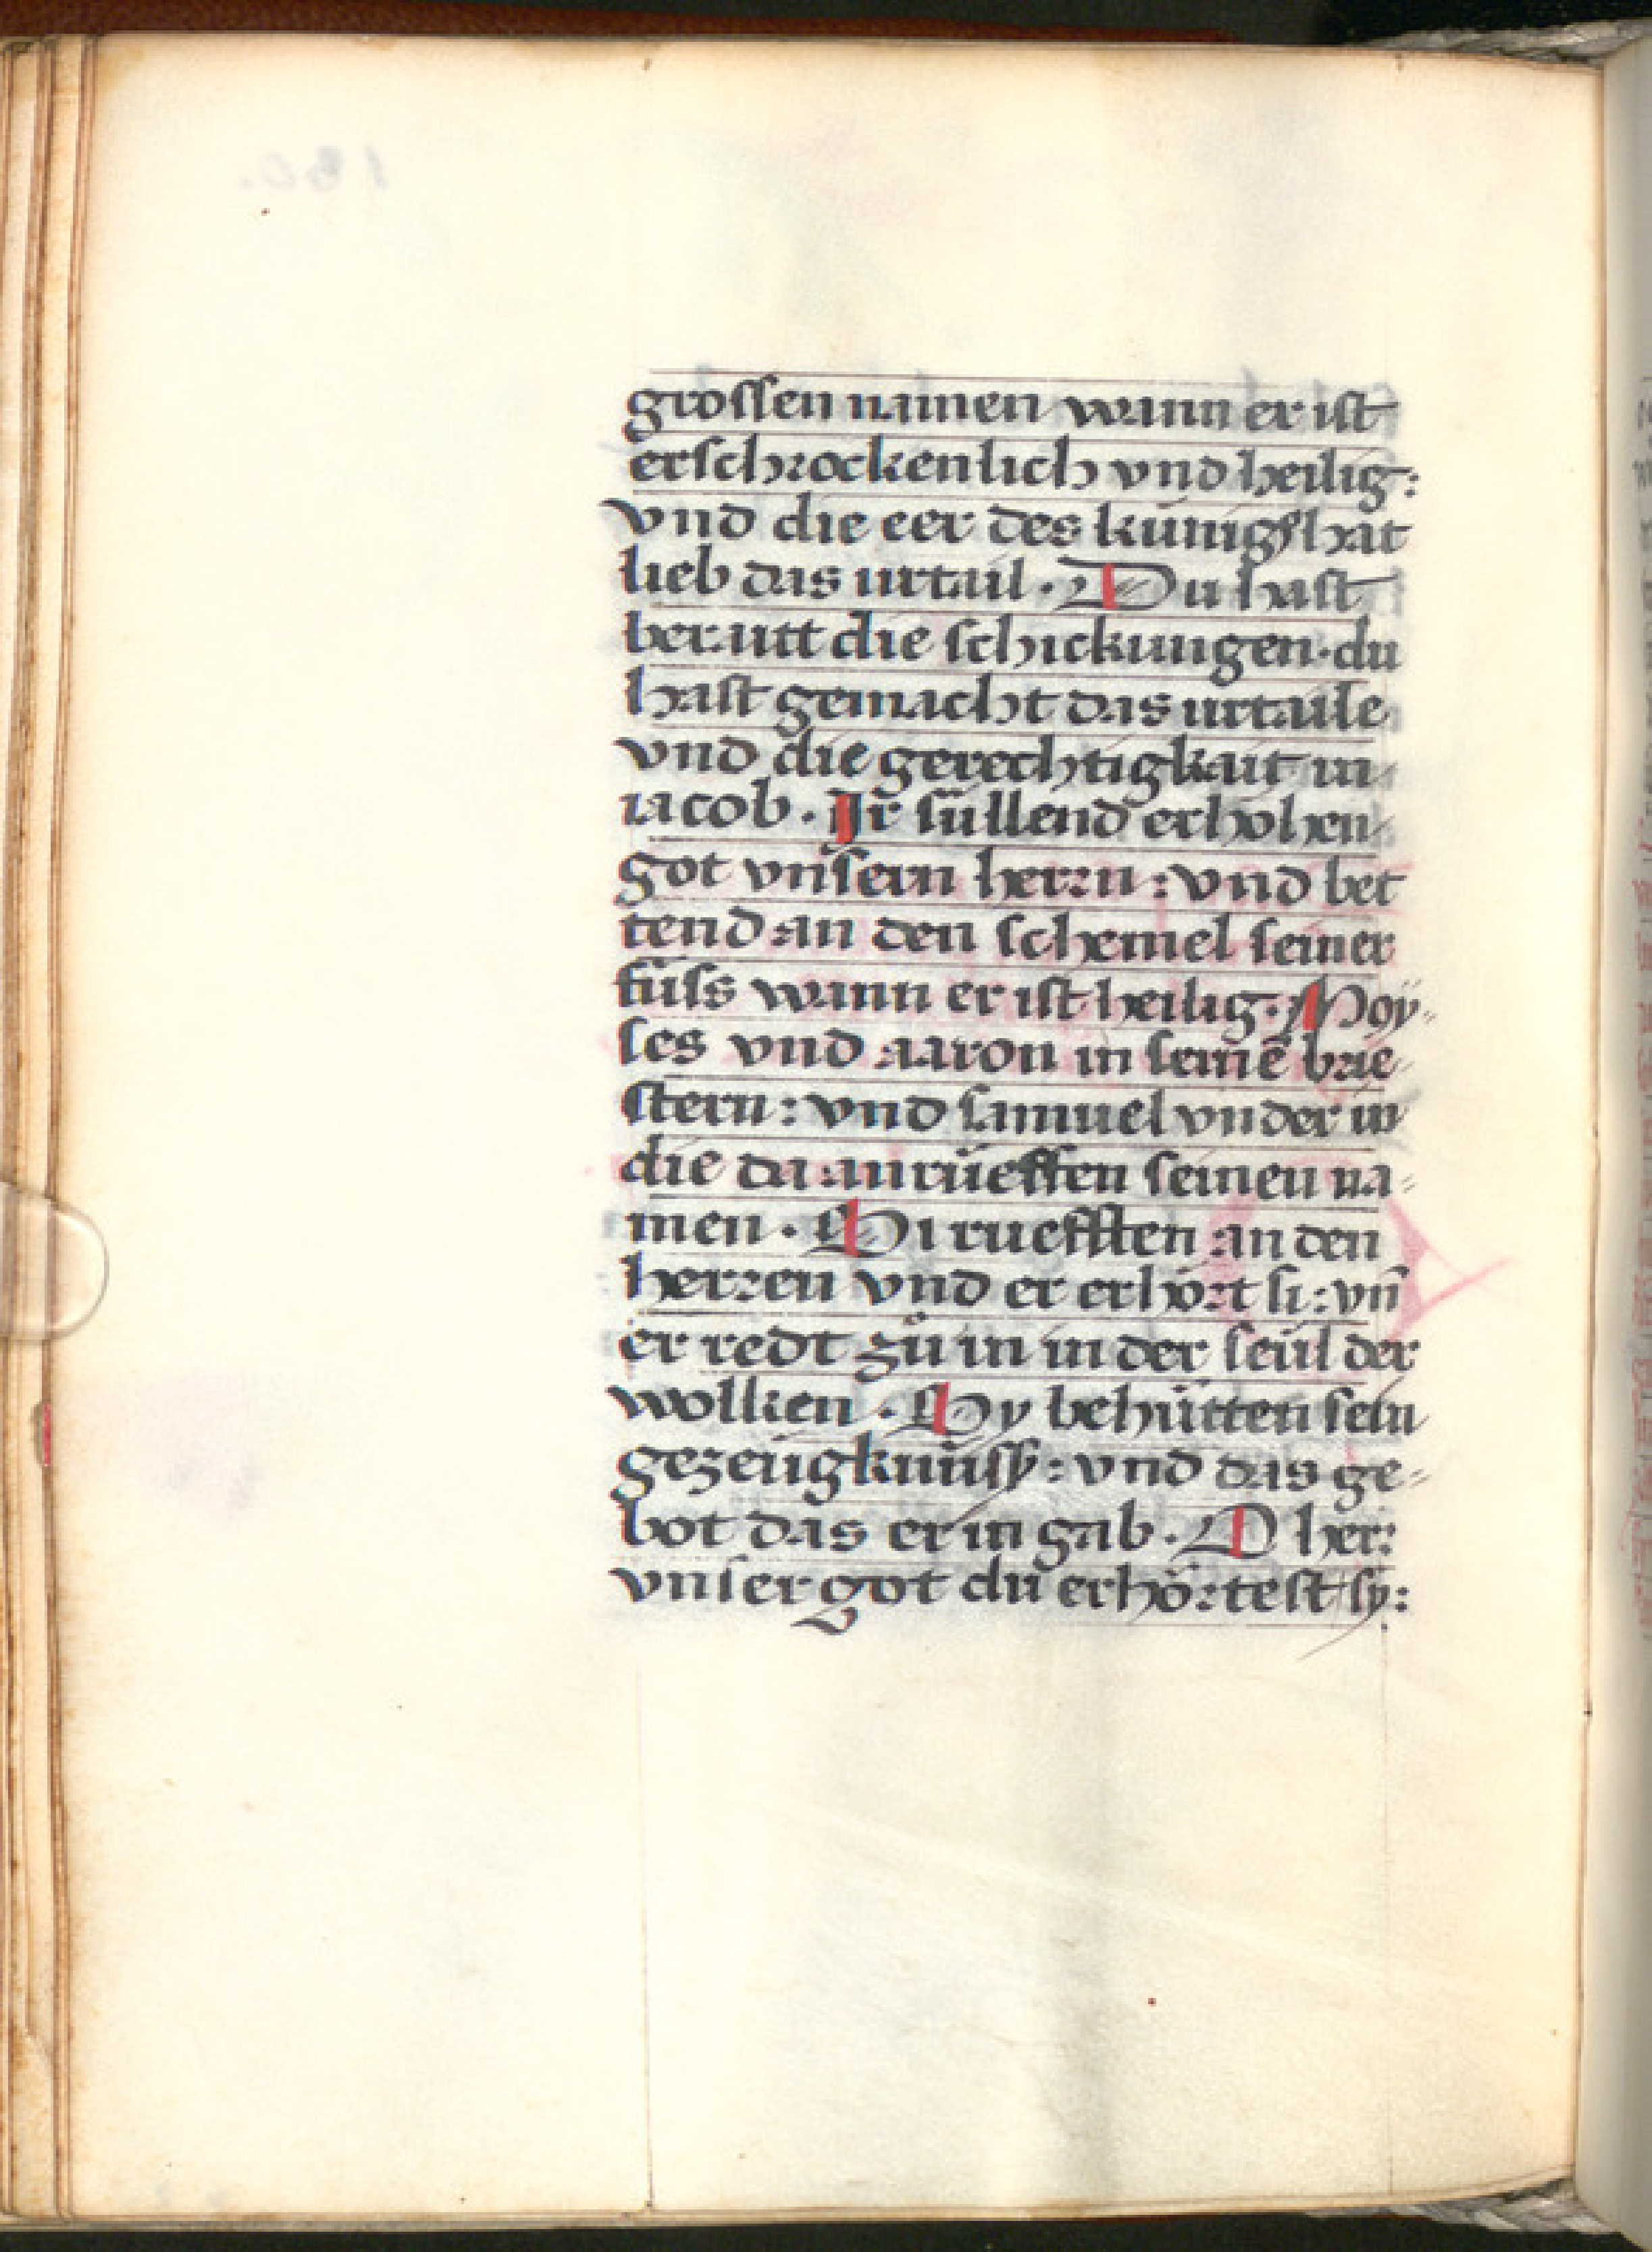 grossen namen wann er ist
erschrockenlich vnd heilig:
vnd die eer des künigs hat
lieb das urtail. Du hast
beraitt die schickungen. du
hast gemacht das urtaile
vnd die gerechtigkait in
iacob. Ir süllend erhohen
got vnsern herrn: vnd bet
tend an den schemel seiner
füss wann er ist heilig. Moÿ-
ses vnd aaron in seinē brie
stern: vnd samuel vnder in
die da anrüeffen seinen na-
men. Si ruefften an den
herren vnd er erhört si: vn̄
er redt zů in in der seül der
wolken. Sy behütten sein
gezeügknüss: vnd das ge-
bot das er in gab. O herr
vnser got du erhörtest sy: